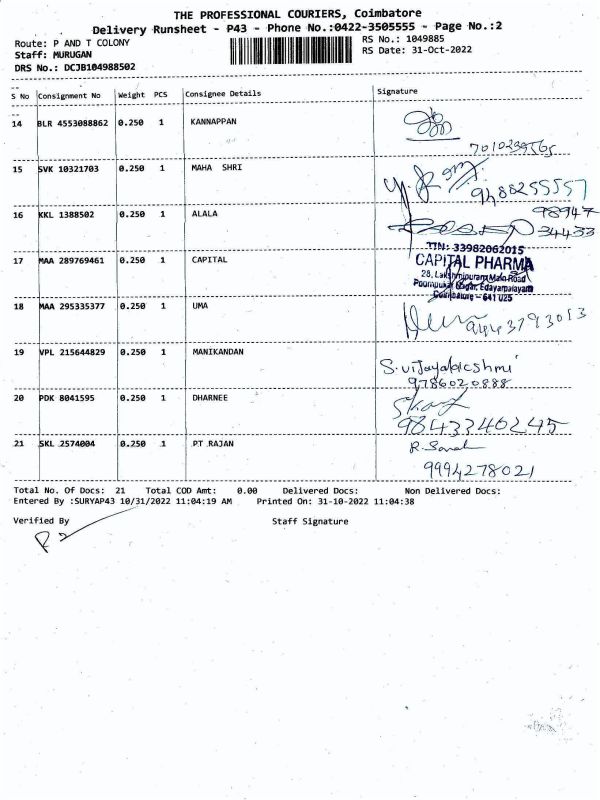 THE PROFESSIONAL COURIERS, Coimbatore
Delivery Runsheet - P43 - Phone No.:0422-3505555 - Page No.:2
Route: P AND T COLONY
RS No.: 1049885
Staff: MURUGAN
RS Date: 31-Oct-2022
DRS No.: DCJB104988502
S No Consignment No Weight PCS Consignee Details Signature
14 BLR 4553088862 0.250 1 KANNAPPAN
15 SVK 10321703 0.250 1 MAHA SHRI
9488255557
16 KKL 1388502 0.250 1 ALALA
98947
34433
17 MAA 289769461 0.250 1 CAPITAL
TIN: 33982062015
CAPITAL PHARMA
28, Lakshmipuram Main Road
Edayarpalayam
Coimbatore - 641 025
18 MAA 295335377 0.250 1 UMA
9443793013
19 VPL 215644829 0.250 1 MANIKANDAN
S.vijayalakshmi
9786020888
20 PDK 8041595 0.250 1 DHARNEE
9843346245
21 SKL 2574004 0.250 1 PT RAJAN
9994278021
Total No. Of Docs: 21 Total COD Amt: 0.00 Delivered Docs: Non Delivered Docs:
Entered By :SURYAP43 10/31/2022 11:04:19 AM Printed On: 31-10-2022 11:04:38
Verified By Staff Signature